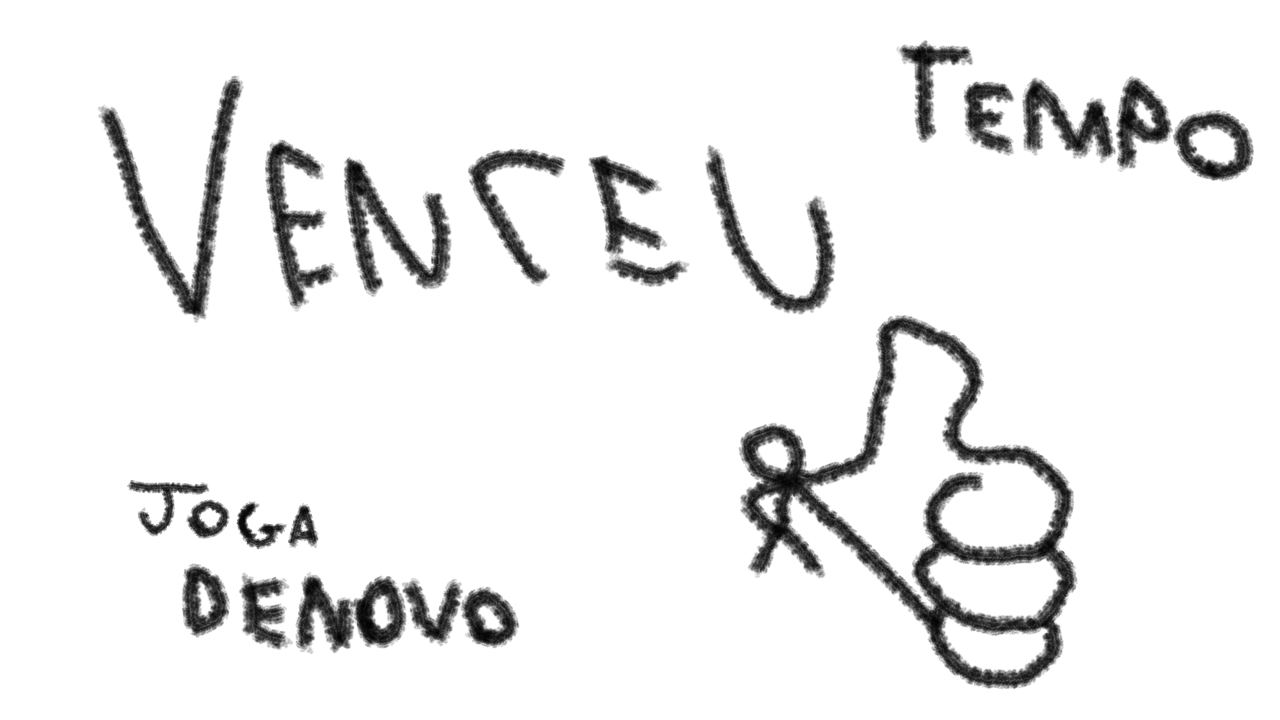 VENCEU
TEMPO
JOGA
DENOVO